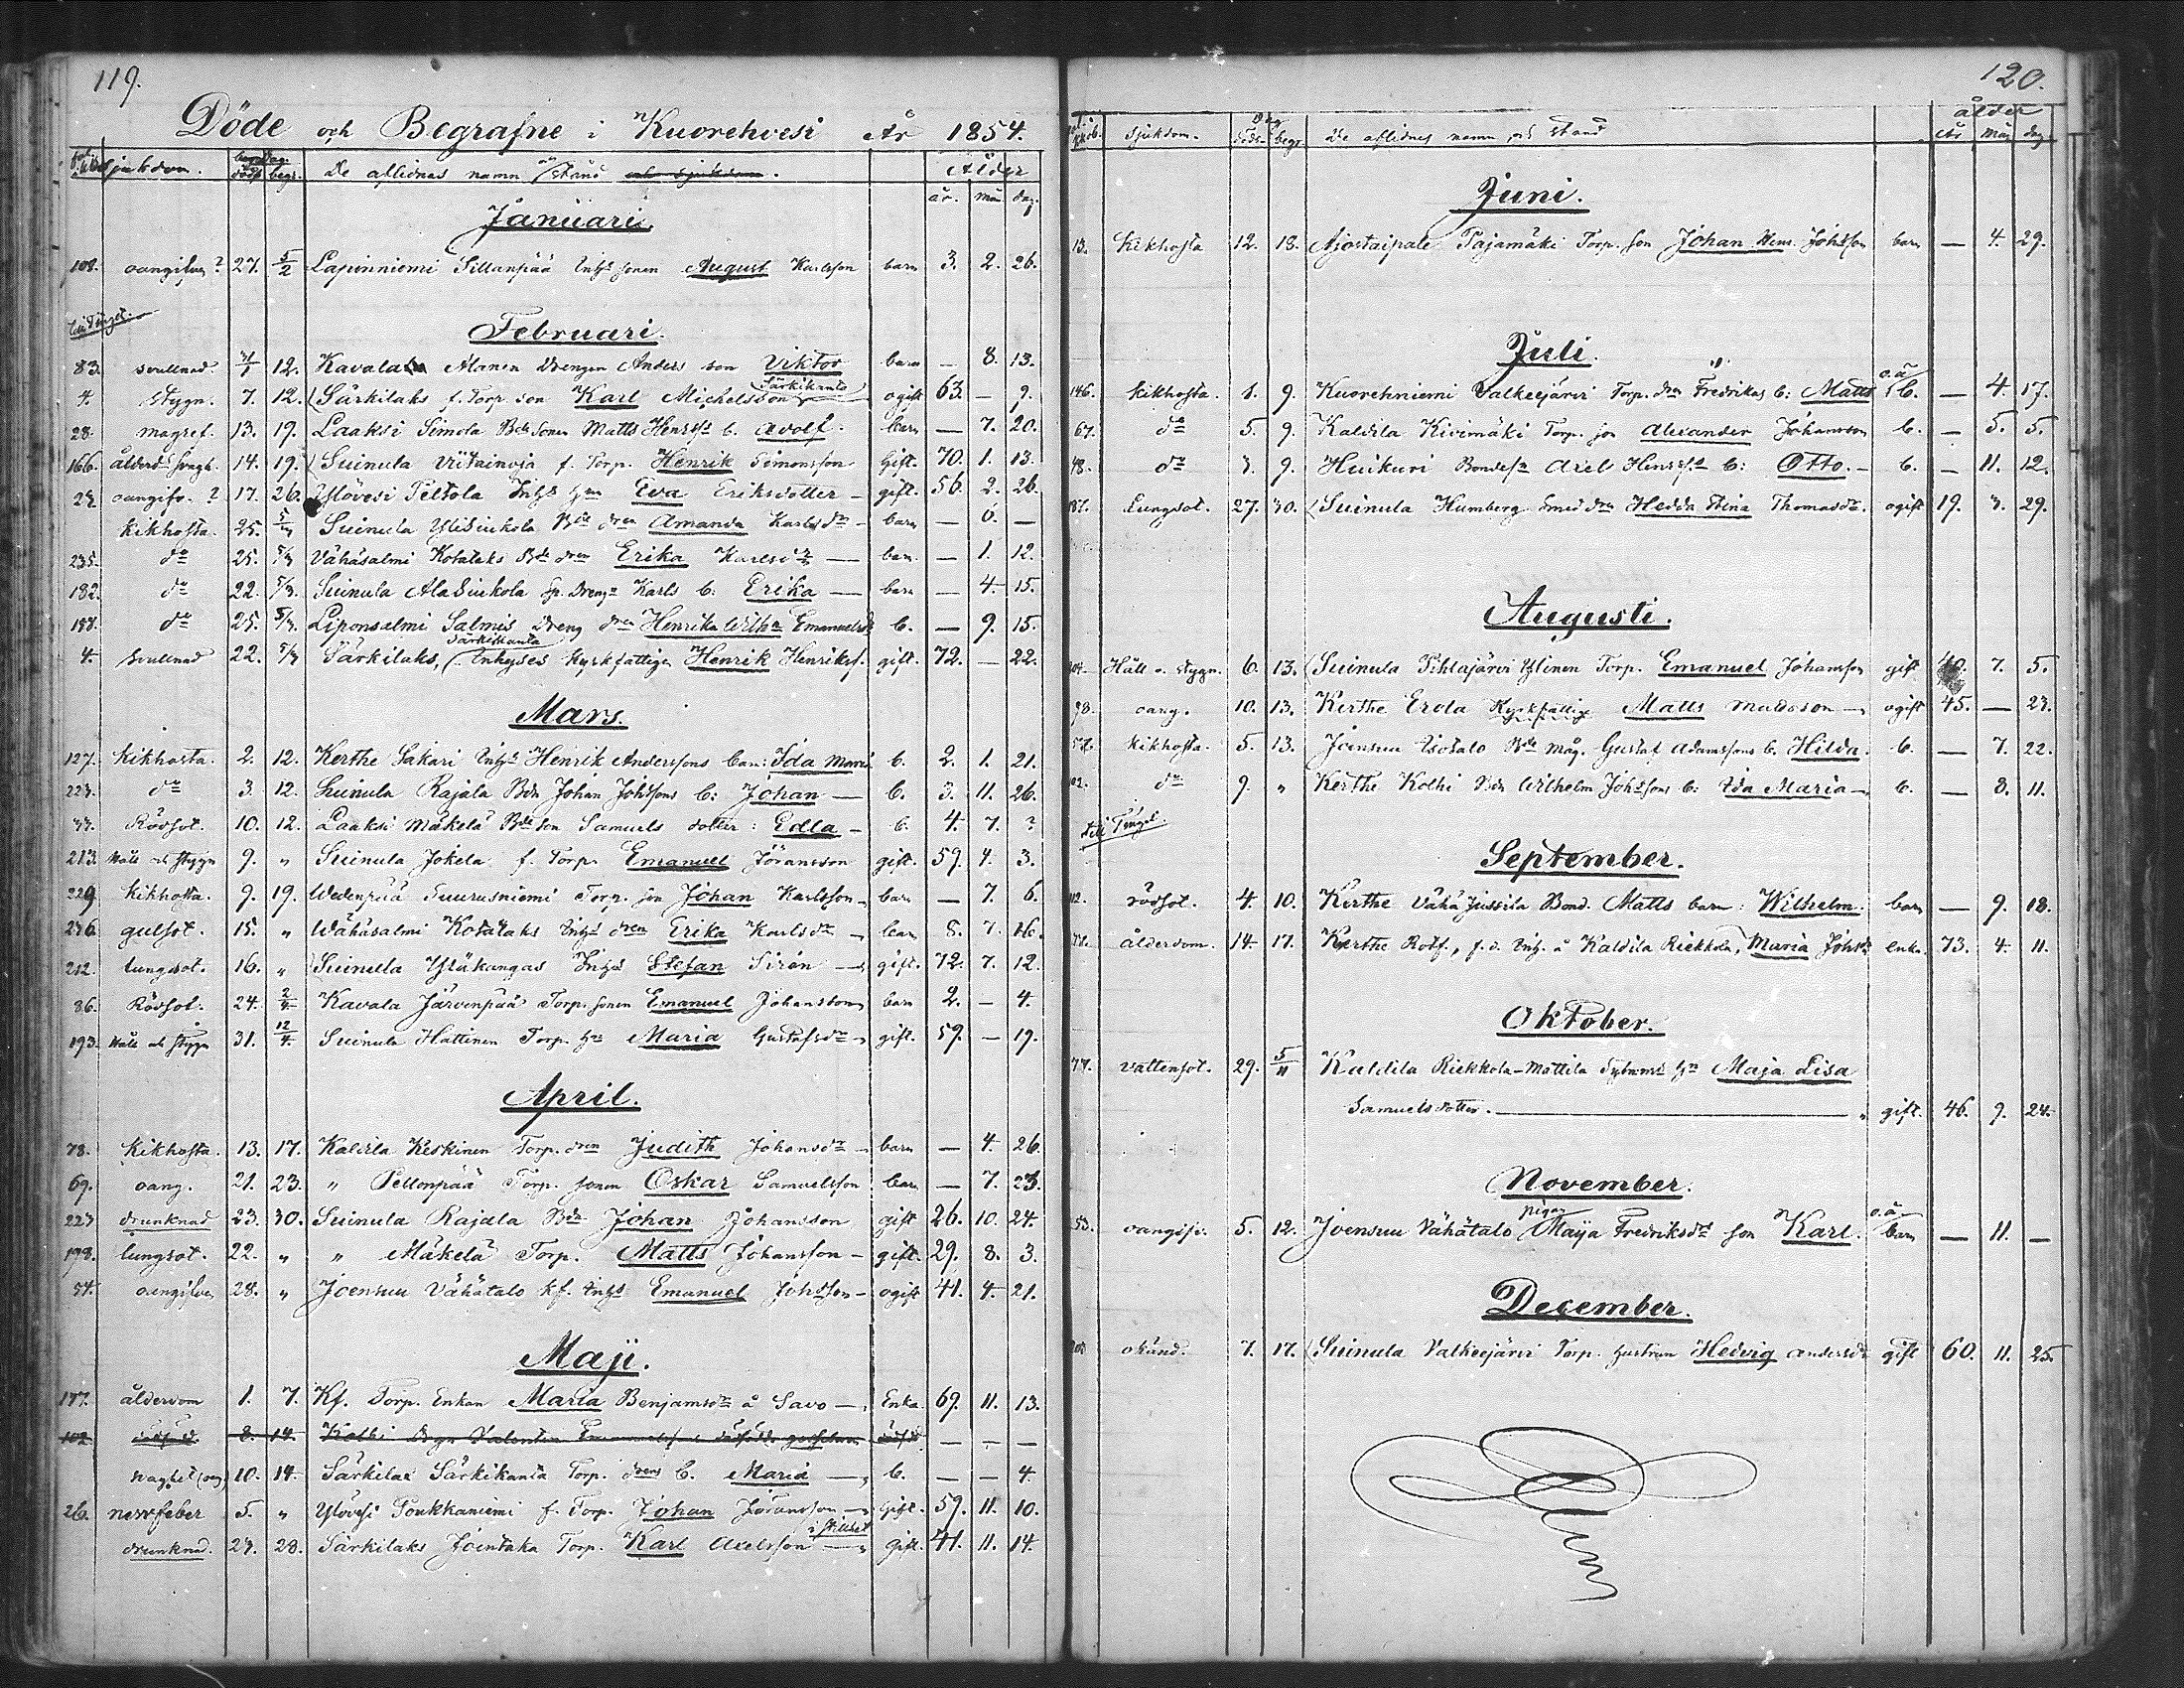 119.
Döde och Begrafne i Kuorehvesi År 1854.
sjukdom. död begr. De aflidnas namn och stånd och sjukdom. Ålder
år. mån dag.
Januari.
109. oangifven? 27. 5/2 Lapinniemi Sillanpää Inhs sonen August Karlsson barn 3. 2. 26.
Februari.
83. svullnad. 31/1 12. Kavala Alanen Drengen Anders son Viktor barn – 8. 13.
4. Stygn. 7. 12. Särkilaks f. Torp. son Karl Michelsson Särkikanta ogift 63. – 9.
28. magref. 13. 19. Laaksi Simola Bde Sonen Matts Henrss b. Adolf. barn – 7. 20.
166. ålderd. svagh. 14. 19. Suinula Viitainoja f. Torp. Henrik Simonsson Gift. 70. 1. 13.
oangifv. ? 17. 26. Ylövesi Peltola Inhs hu Eva Eriksdotter – gift. 56. 2. 26.
Kikhosta. 25. 5/3 Suinula YliSiukola Bde dren Amanda Karlsdr – barn – 6. –
235. do 25. 5/3 Vähäsalmi Kotalaks Bde dren Erika Karlsdr – barn – 1. 12.
182. do 22. 5/3. Suinula AlaSiukola Sp. Drengs Karls b. Erika – barn – 4. 15.
do 25. 5/3. Liponsalmi Salmis Dreng dren Henrika Wilha Emanuelsdr b. – 9. 15.
4. Svullnad 22. 5/3 Särkilaks, Särkikanta Inhyses Kyrkfattige Henrik Henrikss. gift. 72. – 22.
Mars.
127. Kikhosta. 2. 12. Kerthe Sakari Inhs Henrik Anderssons barn: Ida Maria b. 2. 1. 21.
223. do 3. 12. Suinula Rajala Bdn Johan Johssons b: Johan – b. 3. 11. 26.
33. Rödsot. 10. 12. Laaksi Mäkelä Bde son Samuels dotter: Edla – b. 4. 7. ?
213. Håll och stygn 9. " Suinula Jokela f. Torp. Emanuel Göransson gift. 59. 4. 3.
229. Kikhosta. 9. 19. Wedenpää Suurusniemi Torp. son Johan Karlsson – barn – 7. 6.
236. gulsot. 15. " Wähäsalmi Kotalaks Inhs dren Erika Karlsdr – barn 8. 7. 16.
212. lungsot. 16. " Suinula Yläkangas Inhs Stefan Sirén – gift. 72. 7. 12.
86. Rödsot. 24. 2/4 Kavala Järvenpää Torp. sonen Emanuel Johansson barn 2. – 4.
193. Håll och stygn 31. 12/4. Suinula Hattinen Torp. hu Maria Gustafsdr – gift. 59. – 19.
April.
78. Kikhosta. 13. 17. Kaldila Keskinen Torp. dren Judith Johansdr – barn – 4. 26.
69. oang. 21. 23. " Pellonpää Torp. sonen Oskar Samuelsson barn – 7. 23.
223 drunknad 23. 30. Suinula Rajala Bdn Johan Johansson gift 26. 10. 24.
198. lungsot. 22. " " Mäkelä Torp. Matts Johansson – gift. 29. 8. 3.
54. oangifven 28. " Joensuu Vähätalo kf. Inhs Emanuel Johsson – ogift 41. 4. 21.
Maji.
177. ålderdom 1. 7. Kf. Torp. Enkan Maria Benjamsdr å Savo – Enka. 69. 11. 13.
102 8. 14. Kolhi Drgn Valentin – – –
svaghet (oang) 10. 14. Särkilax Särkikanta Torp. drens b. Maria – b. – – 4.
26. nervfeber 5. " Ylövesi Poukkaniemi f. Torp. Johan Johansson – Gift. 59. 11. 10.
drunknad. 23. 28. Särkilaks Jointaka Torp. Karl Axelsson – Gift. 41. 11. 14.
120.
sjukdom. Dag död. begr. De aflidnes namn och stånd ålder
år mån dag.
Juni.
13. Kikhosta 12. 18. Ajostaipale Pajamäki Torp. son Johan Hens. Johsson barn – 4. 29.
Juli.
146. Kikhosta. 1. 9. Kuorehniemi Valkeejärvi Torp. drn Fredrikas b: Matts o.ä. b. – 4. 17.
67. do 5. 9. Kaldila Kivimäki Torp. son Alexander Johansson b. – 5. 5.
48. do 3. 9. Huikuri Bondes. Axel Henrss. b: Otto. – b. – 11. 12.
Lungsot. 27. 30. Suinula Humberg Smed drn Hedda Stina Thomasdr. ogift 19. 3. 29.
Augusti.
Håll o. stygn. 6. 13. Suinula Pihlajärvi Ylinen Torp. Emanuel Johansson gift 40. 7. 5.
98. oang. 10. 13. Kerthe Erola Kyrkfattige Matts Mattsson – ogift 45. – 23.
57. kikhosta. 5. 13. Joensuu Isotalo Bde måg. Gustaf Adamssons b. Hilda. b. – 7. 22.
102. do 9. " Kerthe Kolhi Bdn Wilhelm Johssons b: Ida Maria – b. – 8. 11.
till Tingel.
September.
112. rödsot. 4. 10. Kerthe Vähä Jussila Bond. Matts barn: Wilhelm. barn – 9. 18.
77. ålderdom. 14. 17. Kerthe Rotf., f.d. Inh. å Kaldila Riekkola, Maria Johsdr enka. 73. 4. 11.
Oktober.
77. vattensot. 29. 5/11 Kaldila Riekkola-Mattila Sytnms hu Maja Lisa
Samuelsdotter. – gift. 46. 9. 24.
November.
53. oangifv. 5. 12. Joensuu Vähätalo pigan Maija Fredriksdr son Karl. o.ä. barn – 11. –
December.
okänd. 7. 17. Suinula Valkeejärvi Torp. hustrun Hedvig Andersdr gift 60. 11. 25.